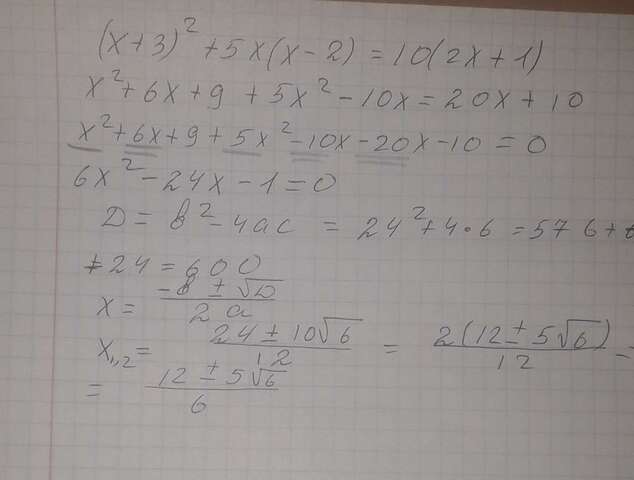 (x+3)² + 5x(x-2) = 10(2x+1)
x² + 6x + 9 + 5x² - 10x = 20x + 10
x² + 6x + 9 + 5x² - 10x - 20x - 10 = 0
6x² - 24x - 1 = 0
D = b² - 4ac = 24² + 4·6 = 576 +
+ 24 = 600
x = (-b ± √D)/(2a)
x₁,₂ = (24 ± 10√6)/12 = (2(12 ± 5√6))/12 =
= (12 ± 5√6)/6